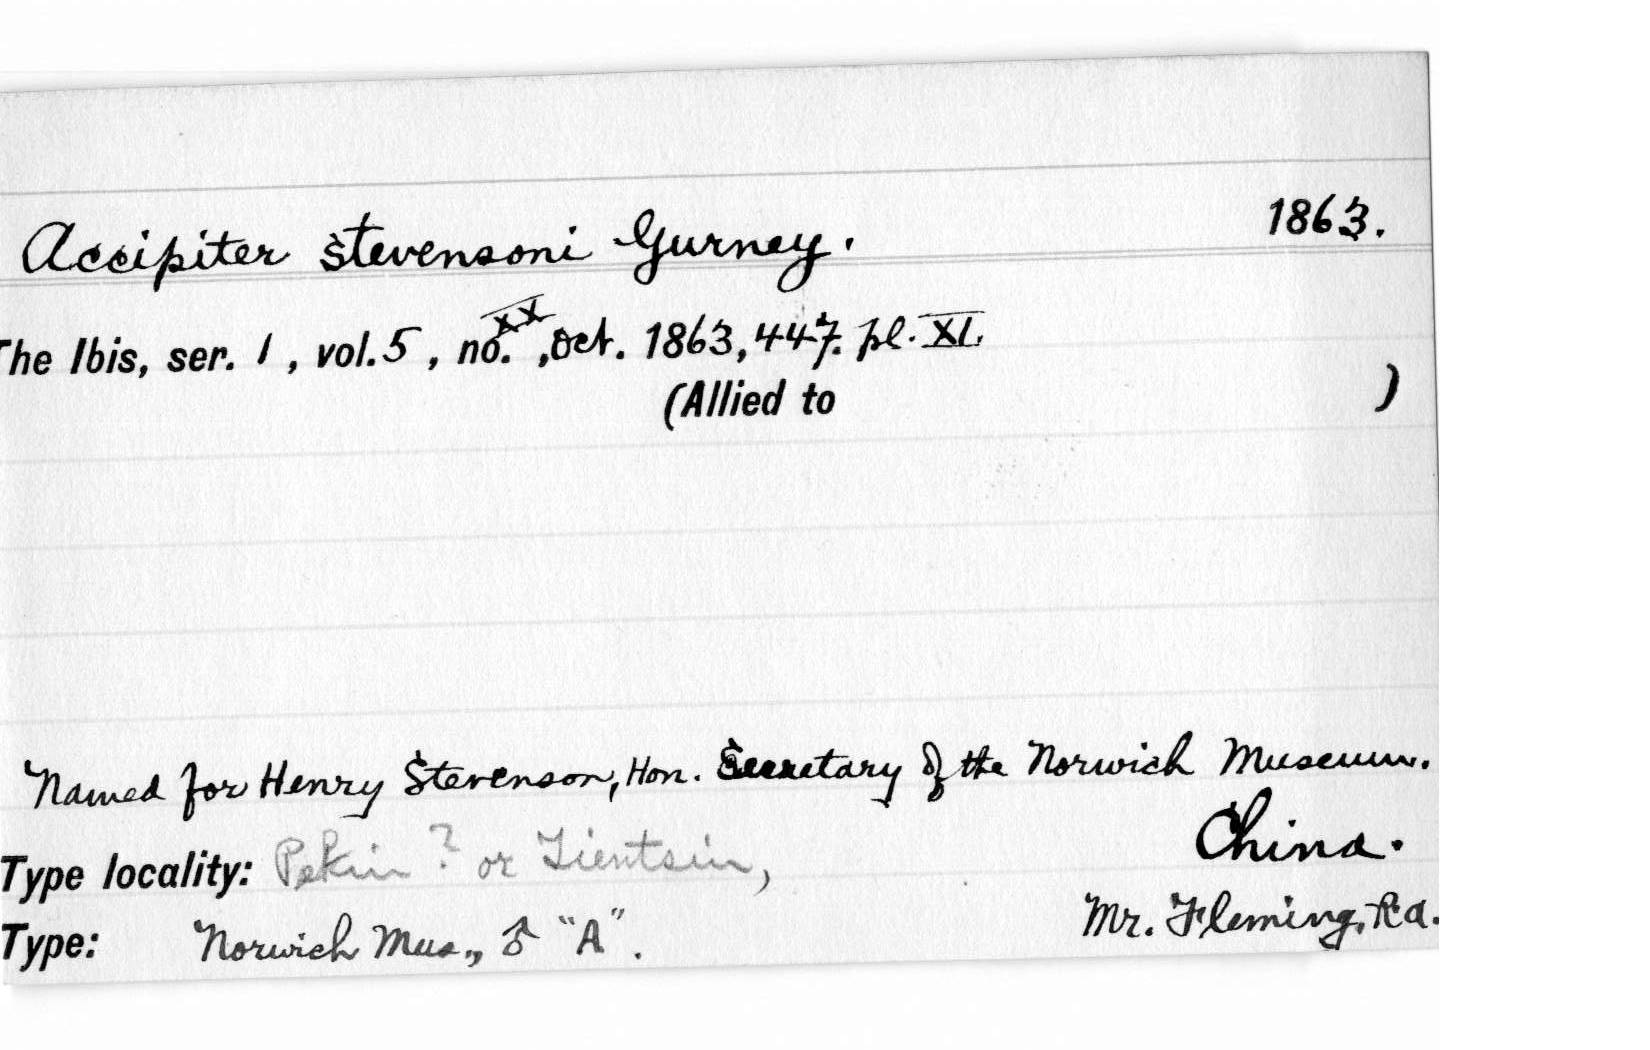 Accipiter stevensoni Gurney. 1863.
The Ibis, ser. 1, vol. 5, no. XX, Oct. 1863, 447. pl. XI.
(Allied to )
Named for Henry Stevenson, Hon. Secretary of the Norwich Museum.
China.
Type locality: Pekin? or Tientsin,
Mr. Fleming, R.A.
Type: Norwich Mus., ♂ "A".